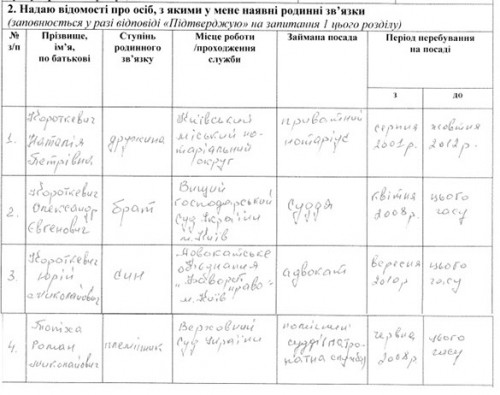 2. Надаю відомості про осіб, з якими у мене наявні родинні зв'язки
(заповнюється у разі відповіді «Підтверджую» на запитання 1 цього розділу)
№ з/п
Прізвище, ім'я, по батькові
Ступінь родинного зв'язку
Місце роботи /проходження служби
Займана посада
Період перебування на посаді
з
до
1.
Короткевич
Наталія
Петрівна
дружина
Київський
міський но-
таріальний
округ
приватний
нотаріус
серпня
2001 р.
жовтня
2012 р.
2.
Короткевич
Олександр
Євгенович
брат
Вищий
господарський
суд України
м. Київ
суддя
квітня
2008 р.
цього
часу
3.
Короткевич
Юрій
Миколайович
син
Адвокатське
об'єднання
право
м. Київ
адвокат
вересня
2010 р.
цього
часу
4.
Роман
Миколайович
племінник
Верховний
суд України
помічник
судді (патро-
натна служба)
червня
2008 р.
цього
часу